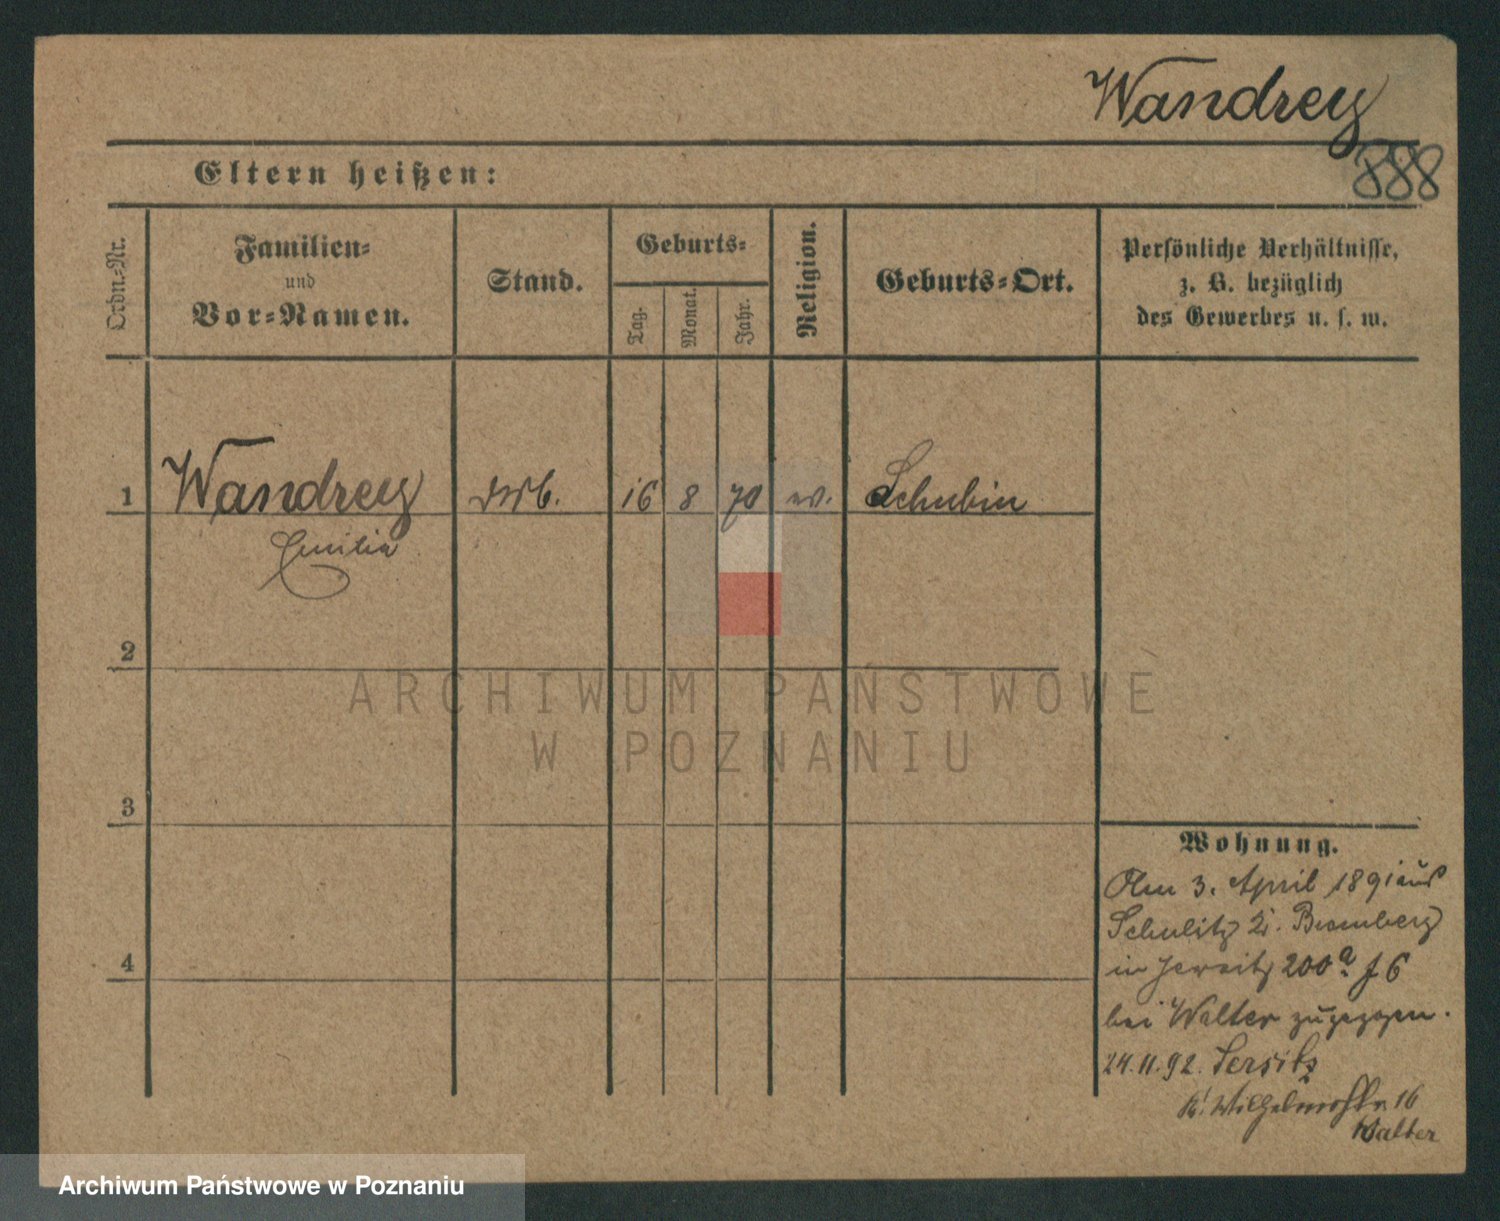 Wandrey
888
Eltern heißen:
Ordn.-Nr.
Familien-
und
Vor-Namen.
Stand.
Geburts-
Tag.
Monat.
Jahr.
Religion.
Geburts-Ort.
Persönliche Verhältnisse,
z. B. bezüglich
des Gewerbes u. s. w.
1 Wandrey 16 8 70 Schubin
Emilia
2
3
4
Wohnung.
Am 3. April 1891 aus
Schulitz Bromberg
in Jersitz 200a
bei Walter zugezogen.
24.11.92. Jersitz
Kl. Wilhelmstr. 16
Walter
ARCHIWUM PAŃSTWOWE
W POZNANIU
Archiwum Państwowe w Poznaniu